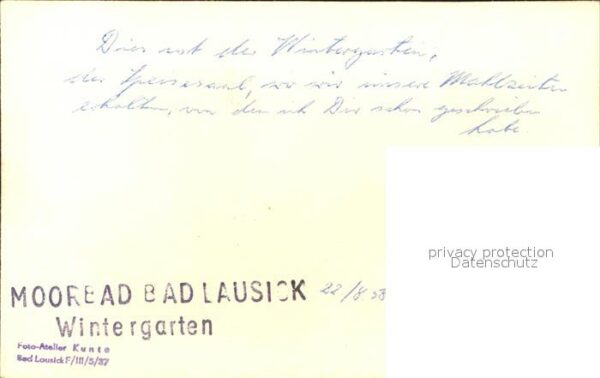 Dies ist der Wintergarten,
der Speisesaal, wo wir unsere Mahlzeiten
erhalten, von dem ich Dir schon geschrieben
habe.
privacy protection
Datenschutz
MOORBAD BAD LAUSICK 22/8.58
Wintergarten
Foto-Atelier Kunte
Bad Lausick F/III/5/37